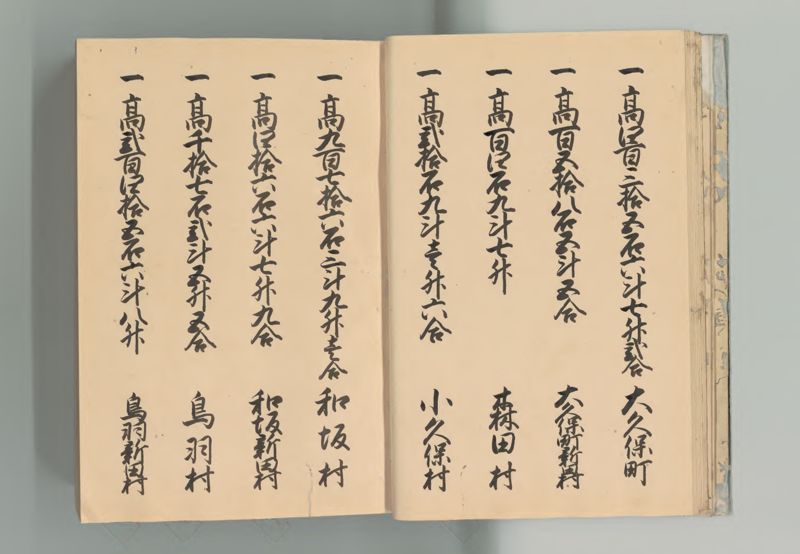 一 高四百三拾五石六斗七升弐合 大久保町
一 高百五拾八石五斗五合 大久保町新村
一 高百四石九斗七升 森田村
一 高弐拾石九斗壱升六合 小久保村
一 高九百七拾六石三斗九升壱合 和坂村
一 高四拾六石六斗七升九合 和坂新田村
一 高千拾七石弐斗五升五合 鳥羽村
一 高弐百四拾五石六斗八升 鳥羽新田村